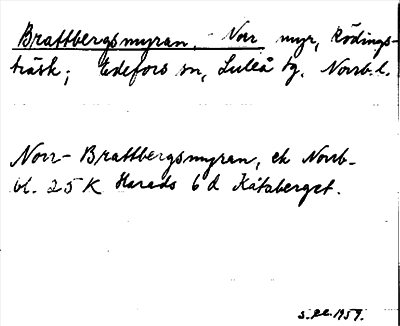 Brattbergsmyran, Norr myr, Rödings-
träsk; Edefors sn, Luleå tg, Norrb. l.
Norr-Brattbergsmyran, ek Norrb-
bl. 25 K Harads 6 d Kåtaberget.
1959.